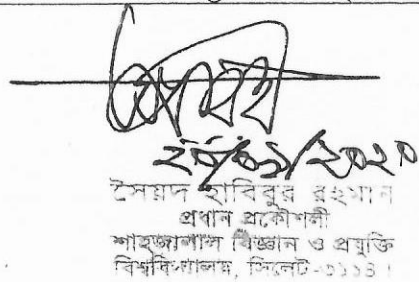 ২০/০১/২০২০
সৈয়দ হাবিবুর রহমান
প্রধান প্রকৌশলী
শাহজালাল বিজ্ঞান ও প্রযুক্তি
বিশ্ববিদ্যালয়, সিলেট-৩১১৪।